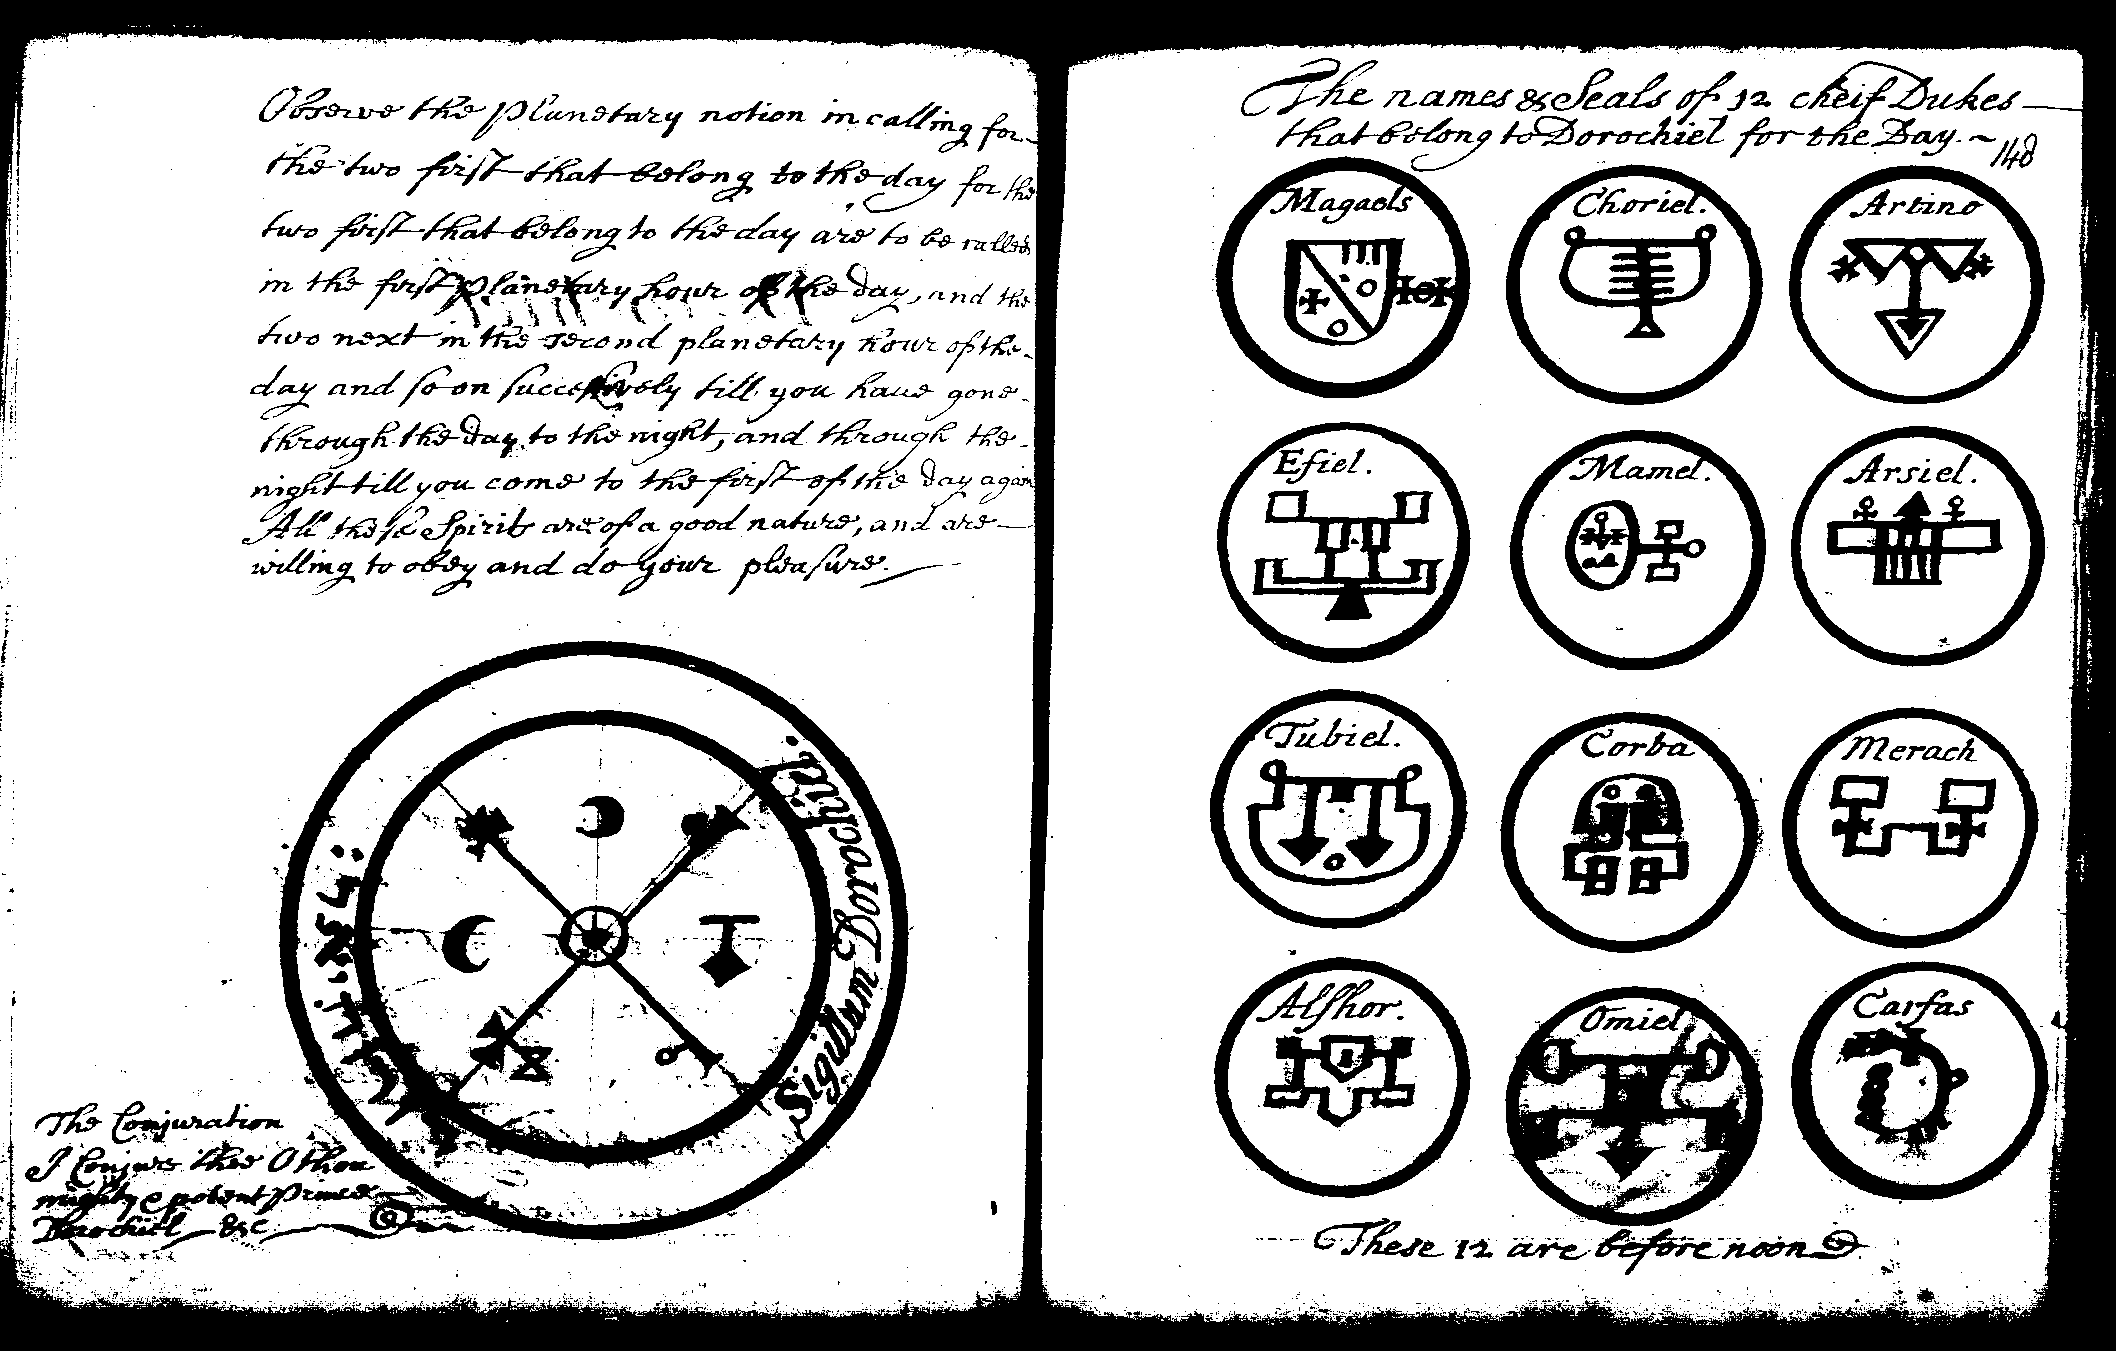 Observe the planetary notion in calling for
the two first that belong to the day for the
two first that belong to the day are to be called
in the first planetary hour of the day, and the
two next in the second planetary hour of the
day and so on successively till you have gone
through the day to the night, and through the
night till you come to the first of the day again
All these Spirits are of a good nature, and are
willing to obey and do your pleasure.
Sigillum Dorochiel.
The Conjuration
I Conjure thee O thou
mighty & potent Prince
Dorochiel &c
The names & Seals of 12 cheif Dukes
that belong to Dorochiel for the Day.
148
Magaels
Choriel.
Artino
Efiel.
Mamel.
Arsiel.
Tubiel.
Corba
Merach
Alshor.
Omiel
Carfas
These 12 are before noon